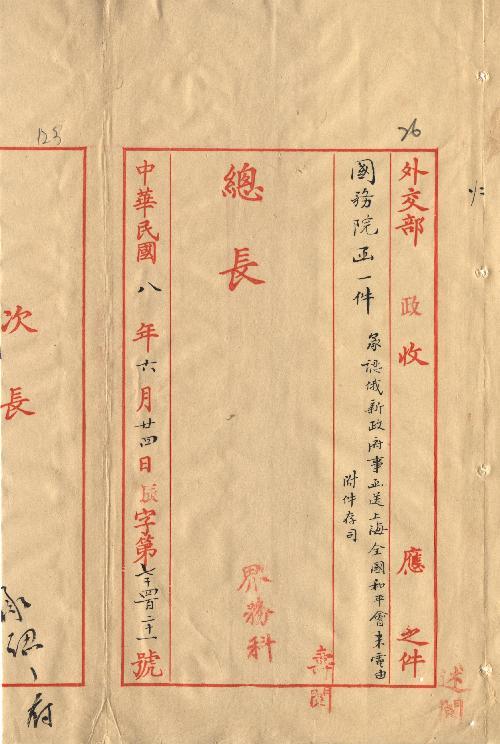 26
外交部 政 收 應 之件
國務院函一件
承認俄新政府事函送上海全國和平會來電由
附件存司
總長
界務科
中華民國八年六月廿四日 字第七千四百二十一號
次長
承認
府